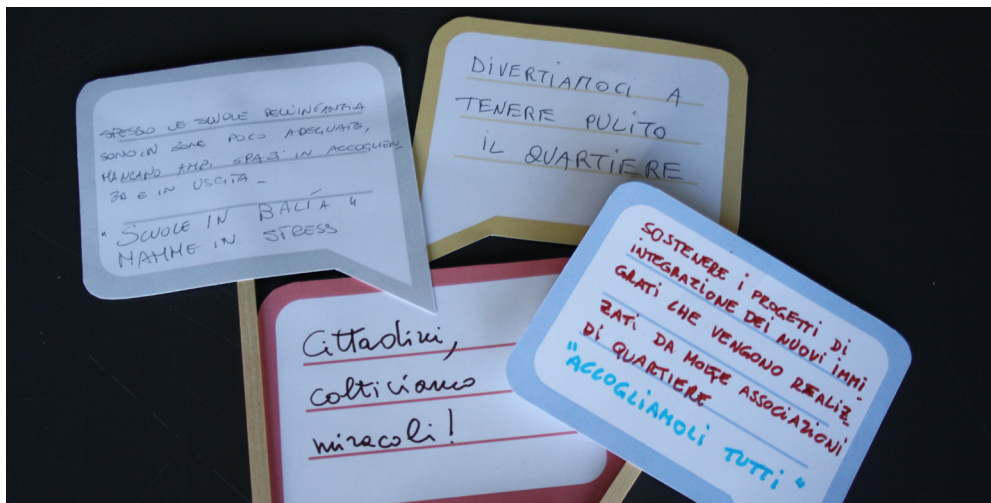 SPESSO LE SCUOLE DELL'INFANZIA
SONO IN ZONE POCO ADEGUATE,
MANCANO AMPI SPAZI IN ACCOGLIEN
ZA E IN USCITA -
"SCUOLE IN BALÍA"
MAMME IN STRESS
DIVERTIAMOCI A
TENERE PULITO
IL QUARTIERE
Cittadini,
coltiviamo
miracoli!
SOSTENERE I PROGETTI DI
INTEGRAZIONE DEI NUOVI IMMI-
GRATI CHE VENGONO REALIZ
ZATI DA MOLTE ASSOCIAZIONI
DI QUARTIERE
"ACCOGLIAMOLI TUTTI"